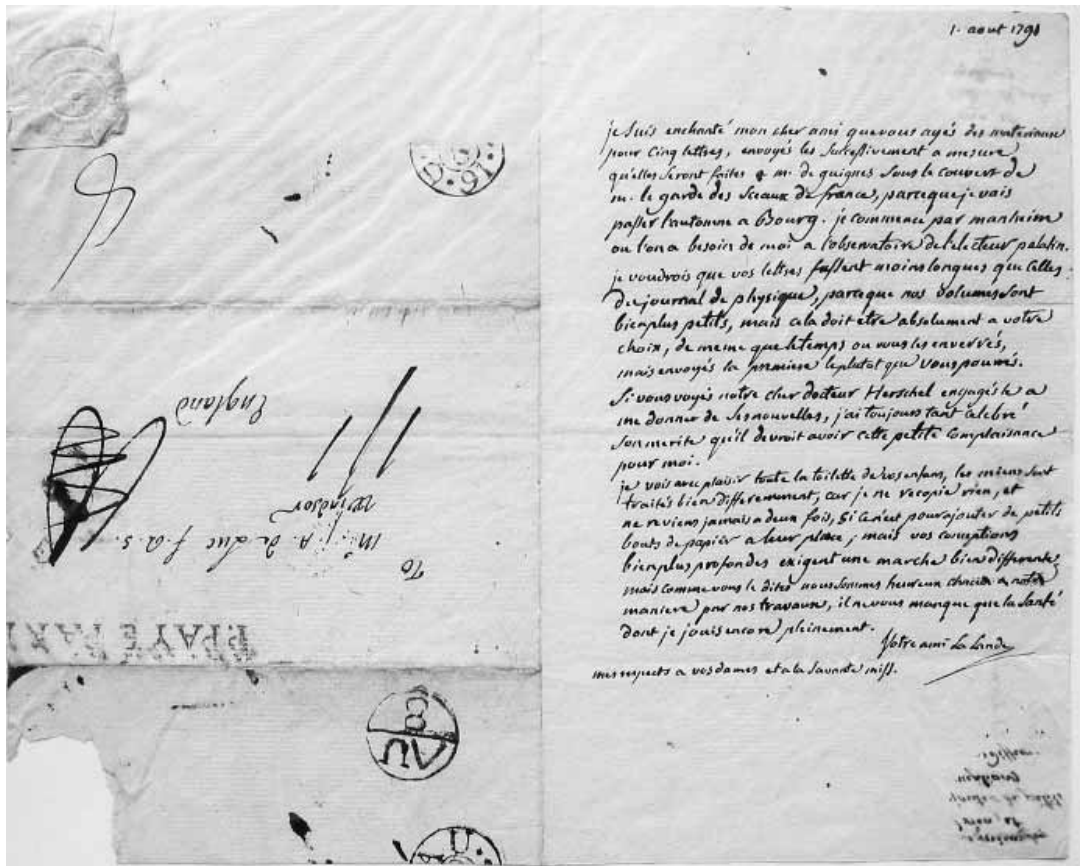 1. aout 1791
je suis enchanté mon cher ami que vous ayés des materiaux
pour cinq lettres, envoyés les successivement a mesure
qu'elles seront faites a m. de guignes sous le couvert de
m. le garde des sceaux de france, parceque je vais
passer l'automne a Bourg. je commence par manheim
ou l'on a besoin de moi a l'observatoire de l'electeur palatin.
je voudrois que vos lettres fussent moins longues que celles
du journal de physique, parceque nos volumes sont
bien plus petits, mais cela doit etre absolument a votre
choix, de meme que le temps ou vous les enverrés,
mais envoyés la premiere le plutot que vous pourrés.
Si vous voyés notre cher docteur Herschel engagés le a
me donner de ses nouvelles, j'ai toujours tant celebré
son merite qu'il devroit avoir cette petite complaisance
pour moi.
je vois avec plaisir toute la toilette de vos enfans, les miens sont
traités bien differemment, car je ne recopie rien, et
ne reviens jamais a deux fois, si ce n'est pour ajouter de petits
bouts de papier a leur place; mais vos conceptions
bien plus profondes exigent une marche bien differente,
mais comme vous le dites nous sommes heureux chacun a notre
maniere par nos travaux, il ne vous manque que la santé
dont je jouis encore pleinement.
Votre ami La Lande
mes respects a vos dames et a la savante miss.
To
Mr. j. A. de Luc f. a. s.
Windsor
England
AU